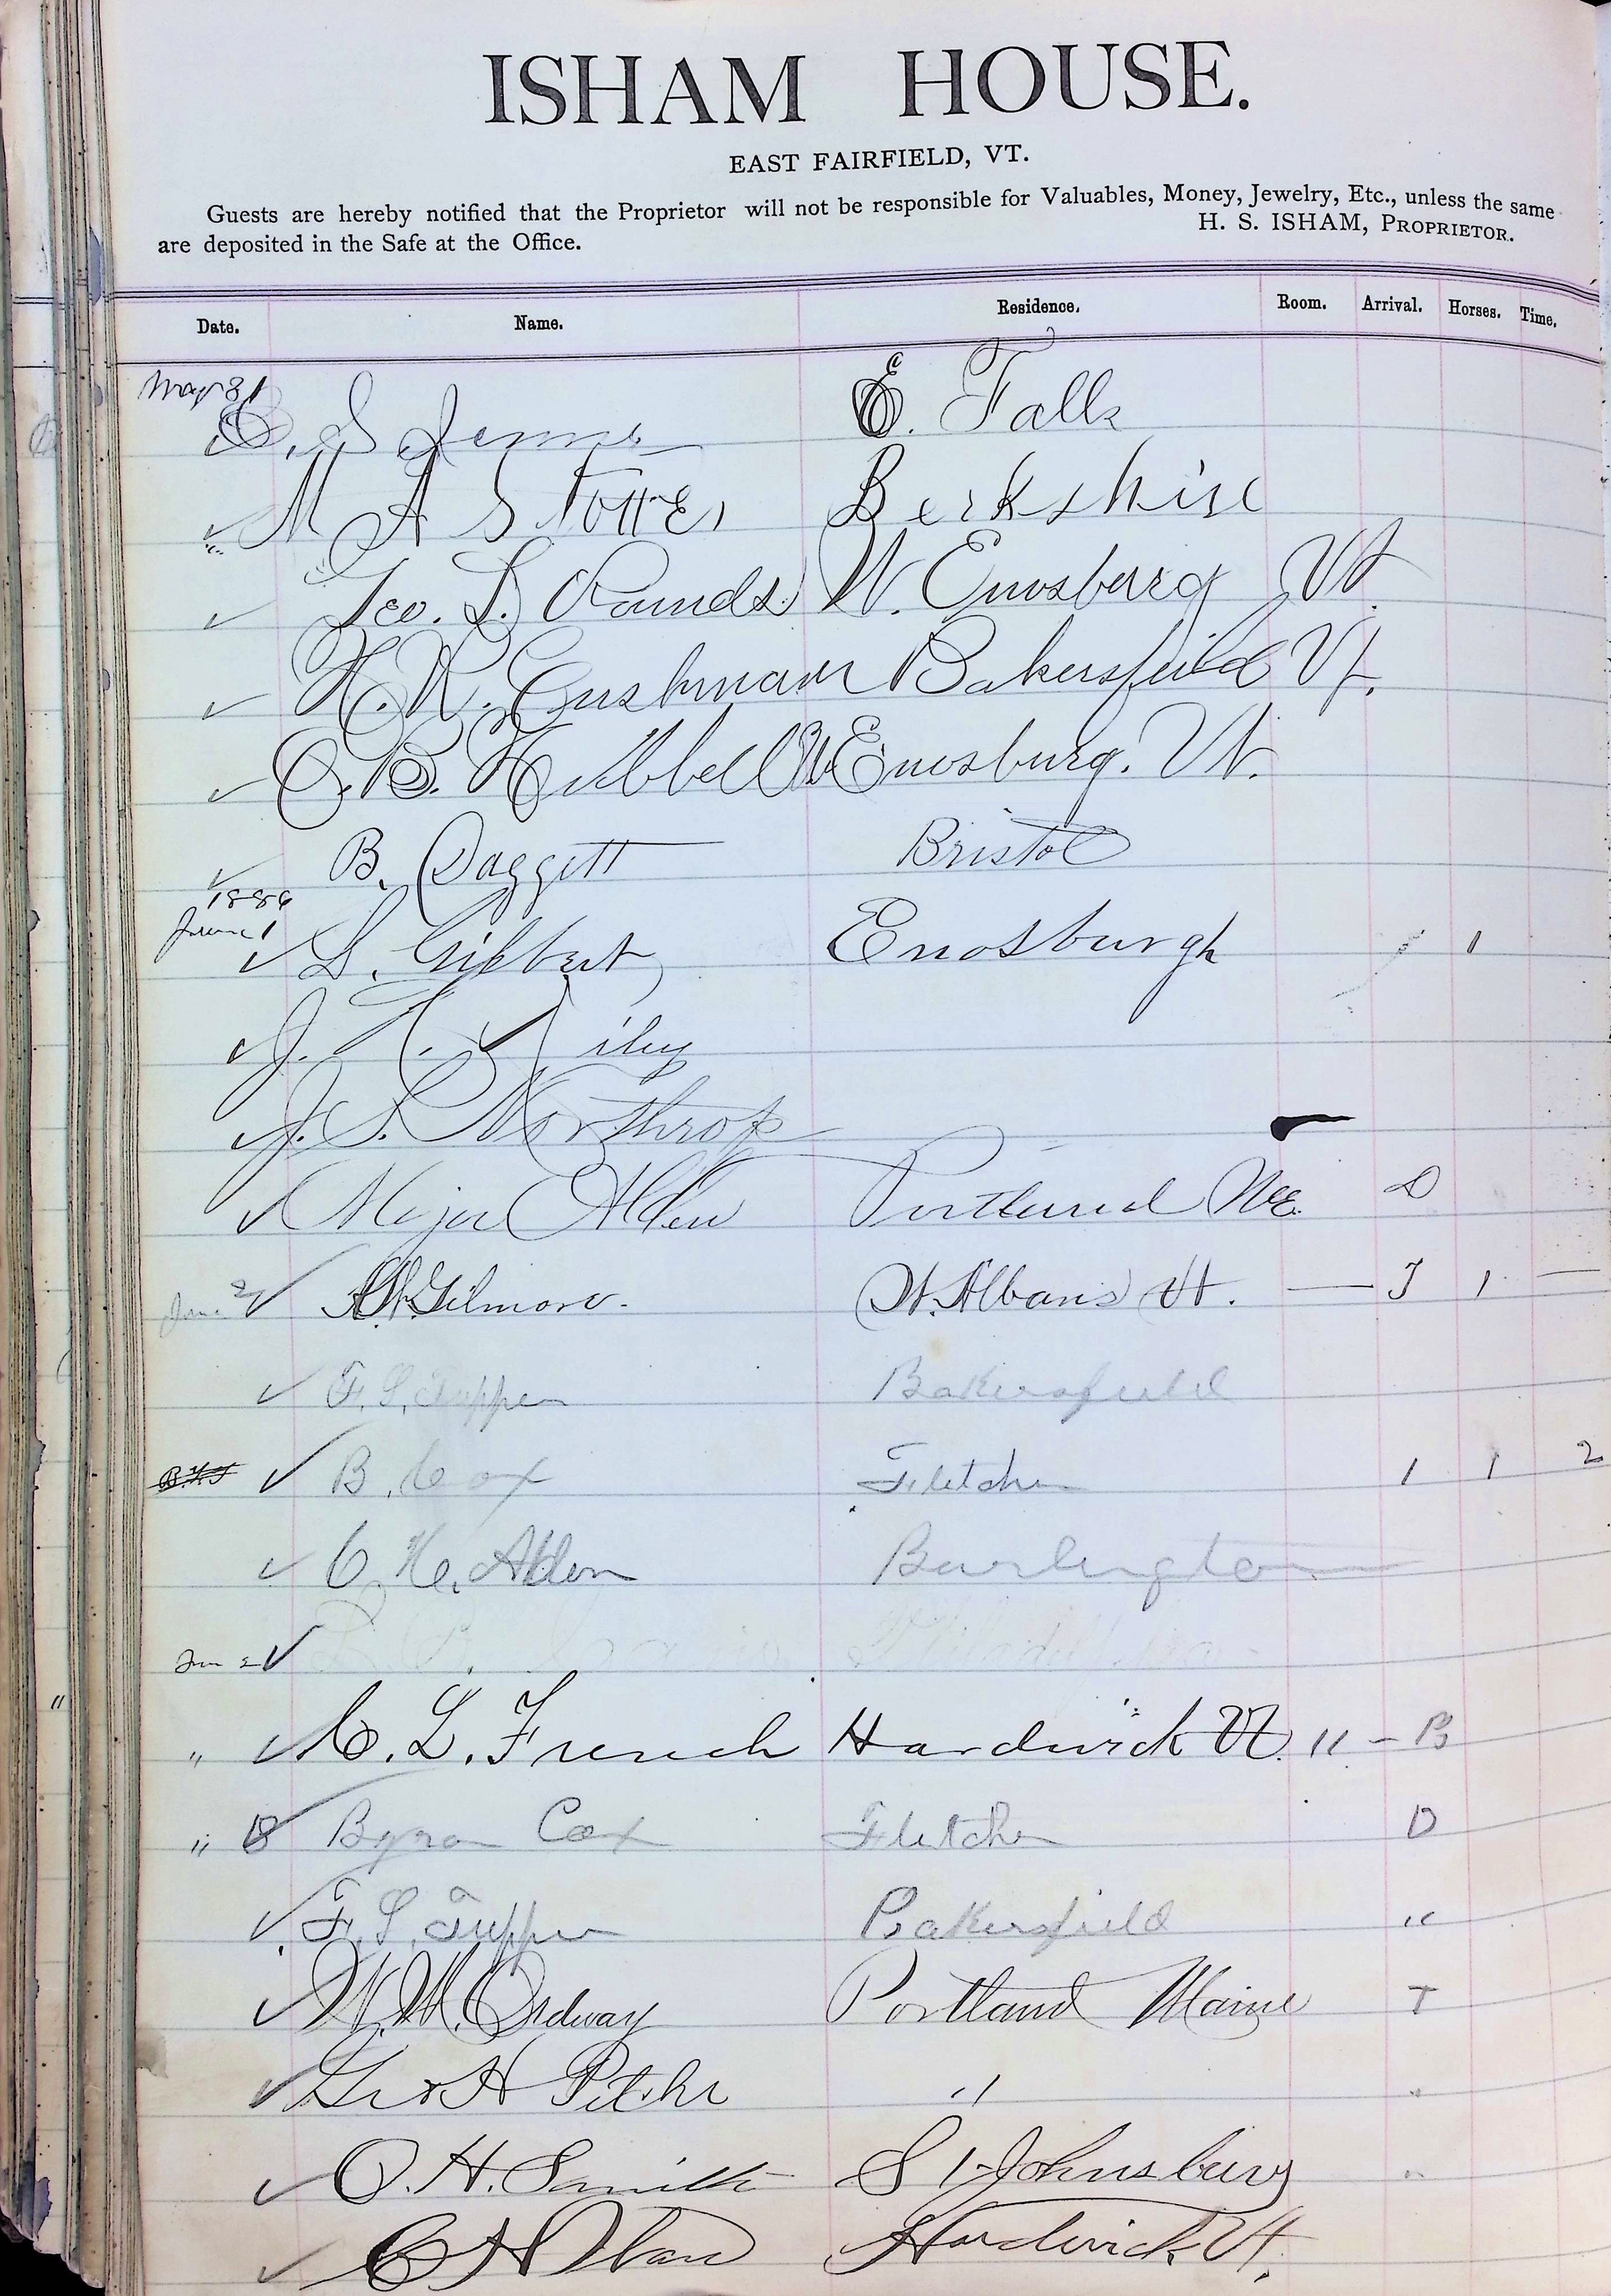 ISHAM HOUSE.
EAST FAIRFIELD, VT.
Guests are hereby notified that the Proprietor will not be responsible for Valuables, Money, Jewelry, Etc., unless the same
are deposited in the Safe at the Office.
H. S. ISHAM, PROPRIETOR.
Date. Name. Residence. Room. Arrival. Horses. Time.
May 31
E. S. Jenne E. Falls
M A Stotter Berkshire
Geo. L. Rounds. W. Enosburg Vt.
H. R. Cushman Bakersfield Vt.
C. B. Hubbell W Enosburg. Vt.
B. Daggett Bristol
1886
June 1
S. Gilbert Enosburgh 1
J. R. Riley
J. S. Northrop
Major Alden Portland Me. D
June 2 Gilmore. St. Albans Vt. — T 1 —
F. S. Tupper Bakersfield
B. Cox Fletcher 1 1 2
C. H. Alden Burlington
Jun 2
" C. L. French Hardwick Vt. 11 - B
" Byron Cox Fletcher D
F. S. Tupper Bakersfield "
W. W. Ordway Portland Maine T
Geo H Pitcher " "
O. H. Smith St Johnsbury "
Hardwick Vt.